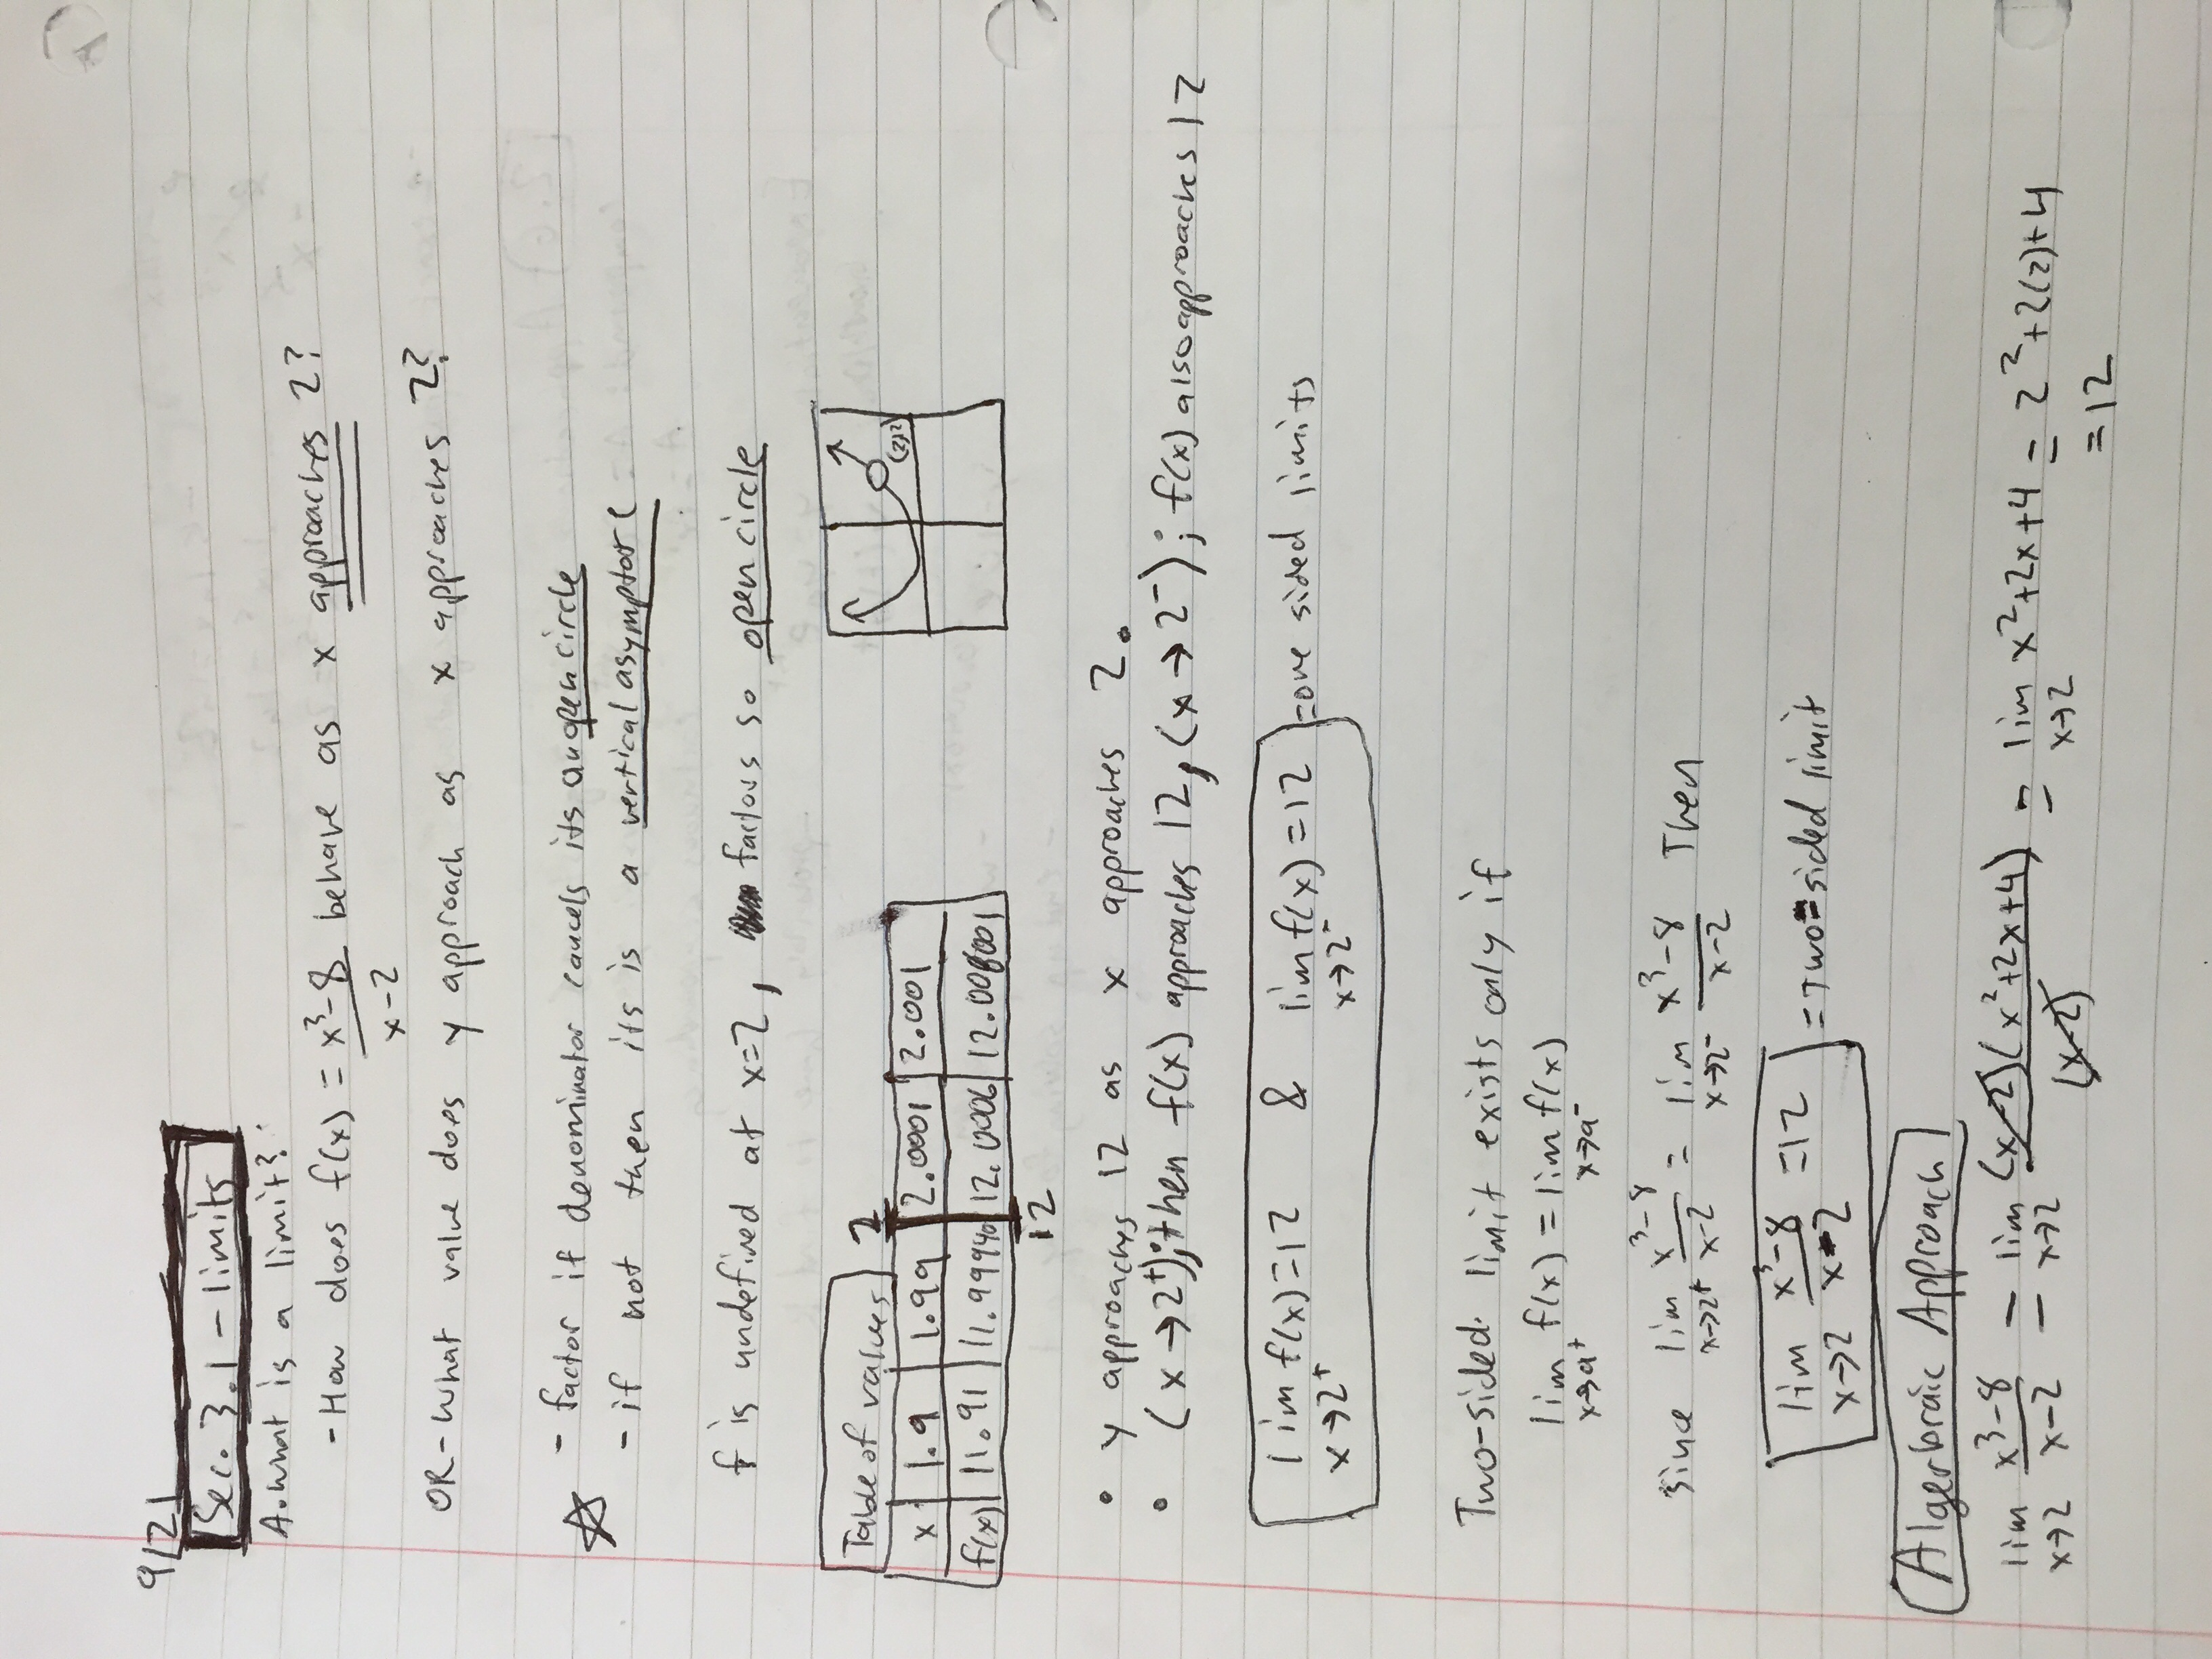 9/2
Sec. 3.1 - limits
A. what is a limit?
- How does f(x) = x³-8 / x-2 behave as x approaches 2?
OR - What value does y approach as x approaches 2?
☆ - factor if denominator cancels its an open circle
- if not then its is a vertical asymptote
f is undefined at x=2, factors so open circle
Table of values
2
x | 1.9 | 1.99 | 2.0001 | 2.001
f(x) | 11.91 | 11.9994 | 12.0006 | 12.006001
12
• y approaches 12 as x approaches 2.
• (x→2⁺); then f(x) approaches 12, (x→2⁻); f(x) also approaches 12
lim f(x)=12 & lim f(x)=12 = one sided limits
x→2⁺ x→2⁻
Two-sided limit exists only if
lim f(x) = lim f(x)
x→a⁺ x→a⁻
Since lim x³-8 / x-2 = lim x³-8 / x-2 Then
x→2⁺ x→2⁻
lim x³-8 / x-2 =12 = Two-sided limit
x→2
Algerbraic Approach
lim x³-8 / x-2 = lim (x-2)(x²+2x+4) / (x-2) = lim x²+2x+4 = 2²+2(2)+4
x→2 x→2 x→2 =12